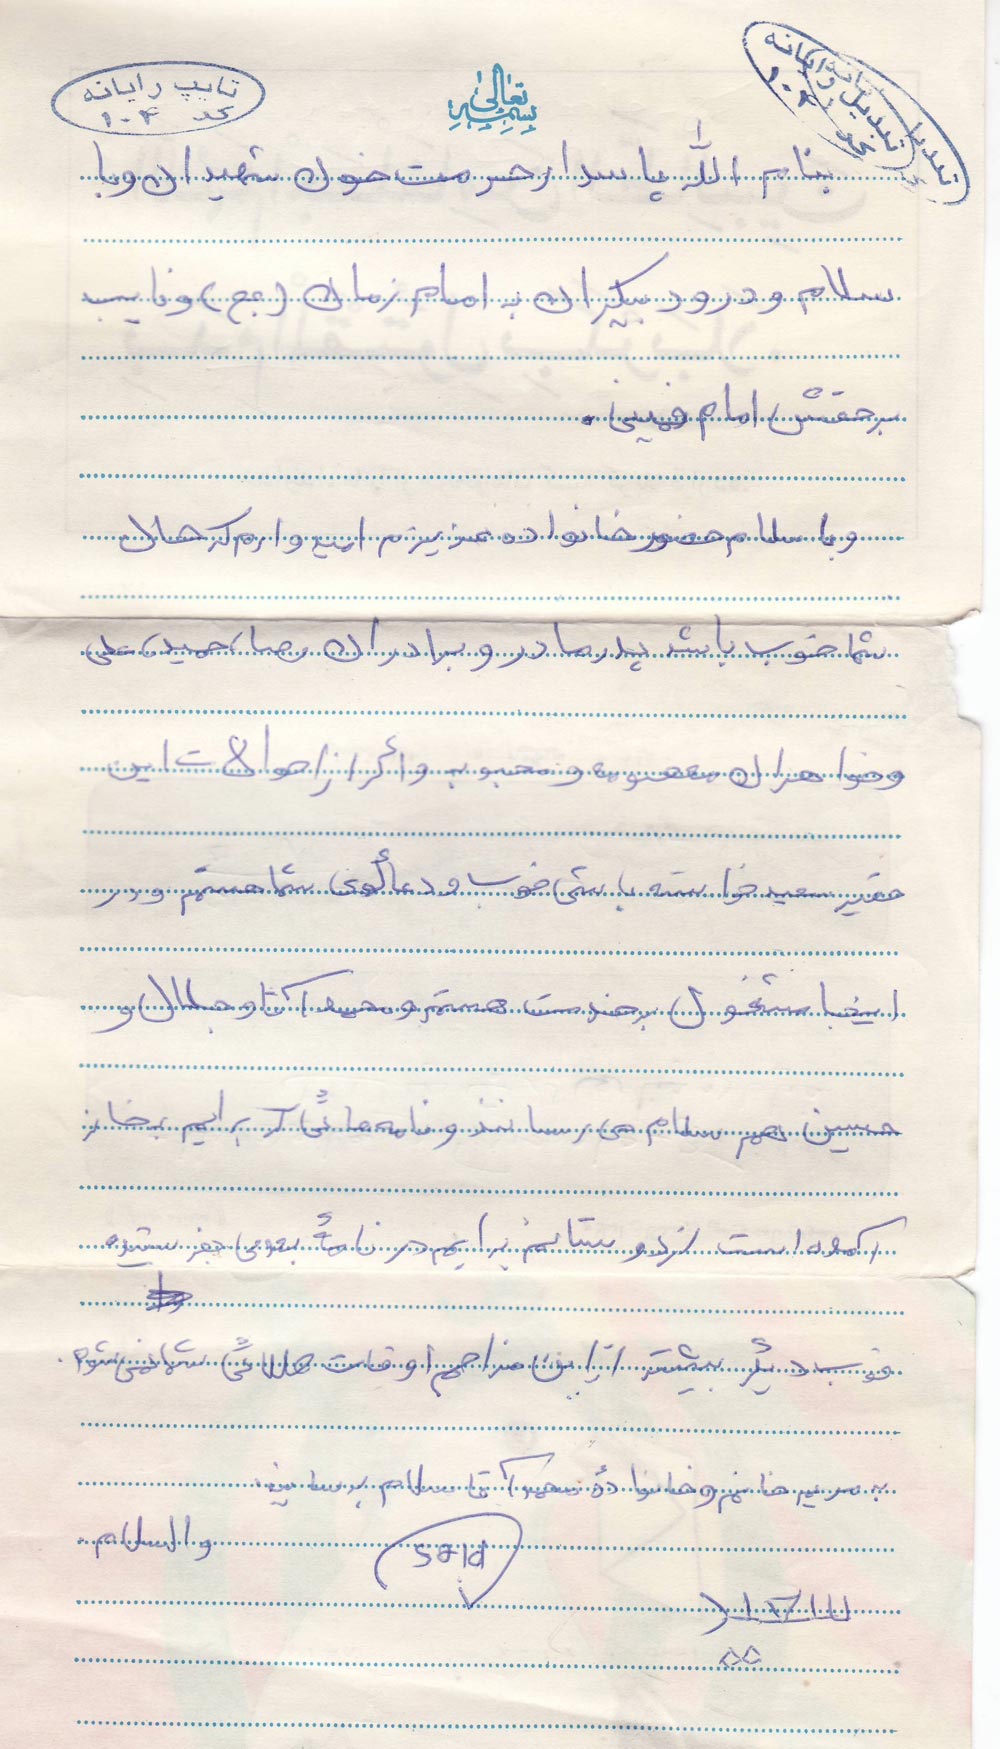 بسمه تعالی
تایپ رایانه
کد ۱۰۴
تبدیل رایانه
بنام الله پاسدار حرمت خون شهیدان و با
سلام و درود بیکران به امام زمان (عج) و نایب
برحقش امام خمینی.
و با سلام حضور خانواده عزیزم امیدوارم که حال
شما خوب باشد پدر مادر و برادران رضا، حمید، علی
و خواهران معصومه و محبوبه و اگر از احوالات این
حقیر سعید خواسته باشی خوب و دعاگوی شما هستم و در
اینجا مشغول به خدمت هستم و محمد آقا و جلال و
حسین هم سلام می رسانند و نامه هائی که برایم به خانه
آمده است از دوستانم برایم در نامهٔ بعدی بفرستید
خوب دیگر بیشتر از این مزاحم اوقات طلائی شما نمی شوم.
به مریم خانم و خانواده محمد آقا سلام برسانید.
والسلام.
said